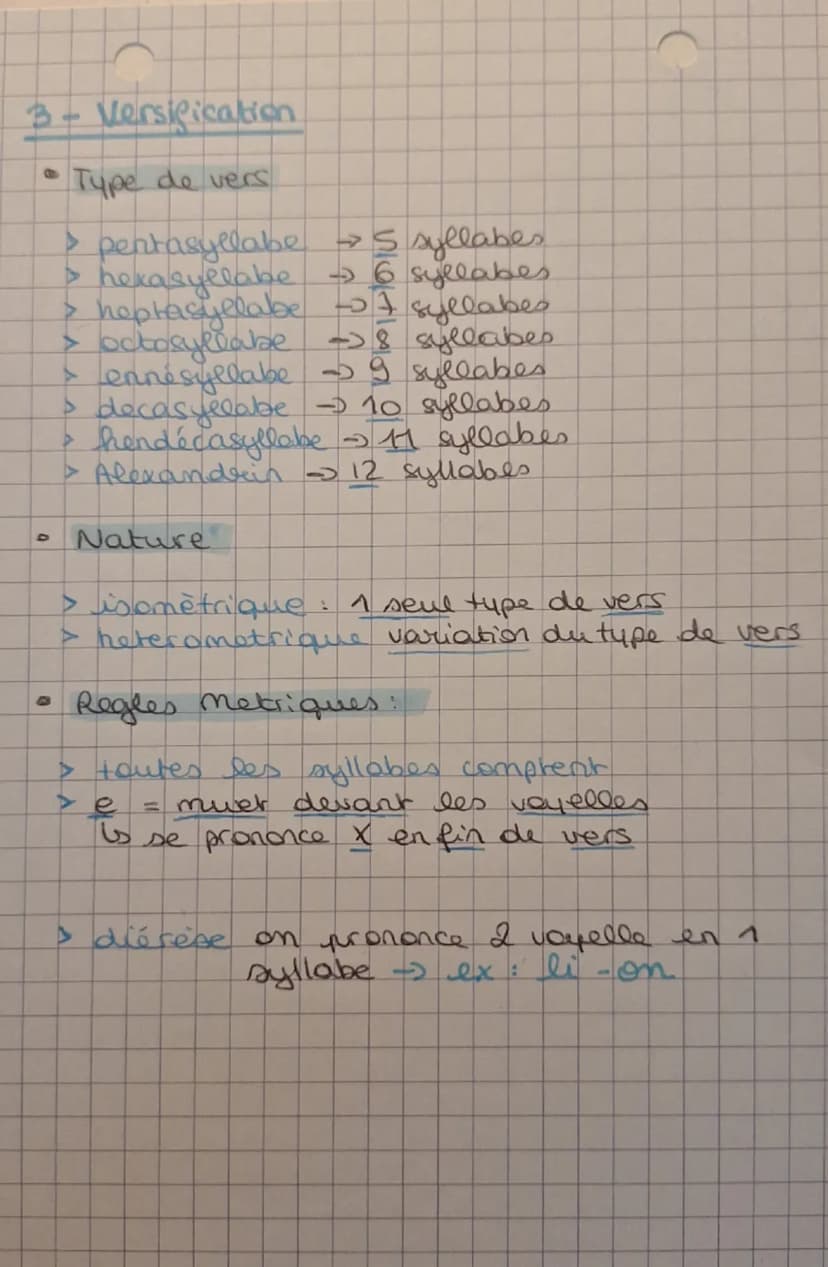 3 - Versification
• Type de vers
> pentasyllabe → 5 syllabes
> hexasyllabe → 6 syllabes
> heptasyllabe → 7 syllabes
> octosyllabe → 8 syllabes
> ennésyllabe → 9 syllabes
> decasyllabe → 10 syllabes
> hendécasyllabe → 11 syllabes
> Alexandrin → 12 syllabes
• Nature
> isométrique : 1 seul type de vers
> heterometrique variation du type de vers
• Regles metriques :
> toutes les syllabes comptent
> e = muet devant les voyelles
↳ se prononce X en fin de vers
> diérèse on prononce 2 voyelle en 1
syllabe → ex : li - on